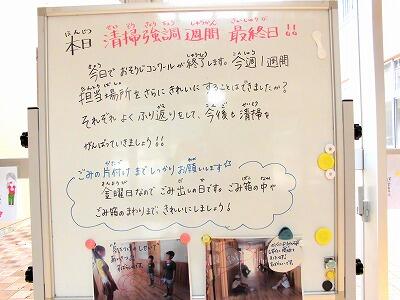 本日 清掃強調週間 最終日!!
今日で おそうじコンクールが終了します。今週1週間
担当場所をさらに きれいに することは できましたか?
それぞれ よく ふり返りをして、今後も清掃を
がんばっていきましょう!!
ごみの片付けまで しっかり お願いします☆
金曜日なので ごみ出しの日です。ごみ箱の中や
ごみ箱のまわりまで きれいにしましょう!